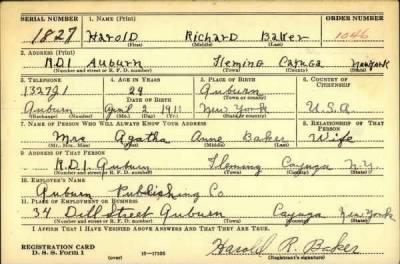 SERIAL NUMBER 1. NAME (Print) ORDER NUMBER
1827 Harold Richard Baker 1046
(First) (Middle) (Last)
2. ADDRESS (Print)
R.D.1 Auburn Fleming Cayuga New York
(Number and street or R. F. D. number) (Town) (County) (State)
3. TELEPHONE 4. AGE IN YEARS 5. PLACE OF BIRTH 6. COUNTRY OF CITIZENSHIP
132721 29 Auburn
DATE OF BIRTH (Town or county)
Auburn April 2 1911 New York U.S.A
(Exchange) (Number) (Mo.) (Day) (Yr.) (State or country)
7. NAME OF PERSON WHO WILL ALWAYS KNOW YOUR ADDRESS 8. RELATIONSHIP OF THAT PERSON
Mrs Agatha Anne Baker Wife
(Mr., Mrs., Miss) (First) (Middle) (Last)
9. ADDRESS OF THAT PERSON
R.D.1. Auburn Fleming Cayuga N.Y.
(Number and street or R. F. D. number) (Town) (County) (State)
10. EMPLOYER'S NAME
Auburn Publishing Co
11. PLACE OF EMPLOYMENT OR BUSINESS
34 Dill Street Auburn Cayuga New York
(Number and street or R. F. D. number) (Town) (County) (State)
I AFFIRM THAT I HAVE VERIFIED ABOVE ANSWERS AND THAT THEY ARE TRUE.
REGISTRATION CARD Harold R. Baker
D. S. S. Form 1 (over) (Registrant's signature)